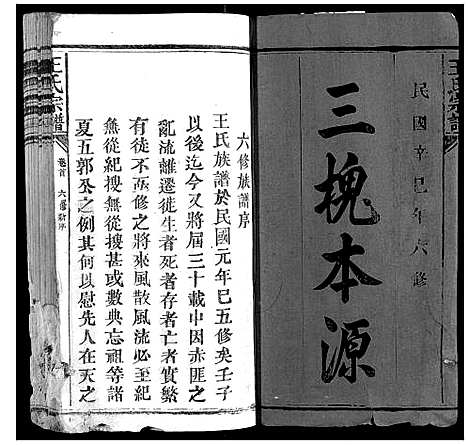 民國辛巳年六修
三槐本源
王氏宗譜
六修族譜序
王氏族譜於民國元年已五修矣壬子
以後迄今又將屆三十載中因赤匪之
亂流離遷徙生者死者存者亡者實繁
有徒不亟修之將來風散風流必至紀
無從紀搜無從搜甚或數典忘祖等諸
夏五郭公之例其何以慰先人在天之
王氏宗譜
卷首
六修新序